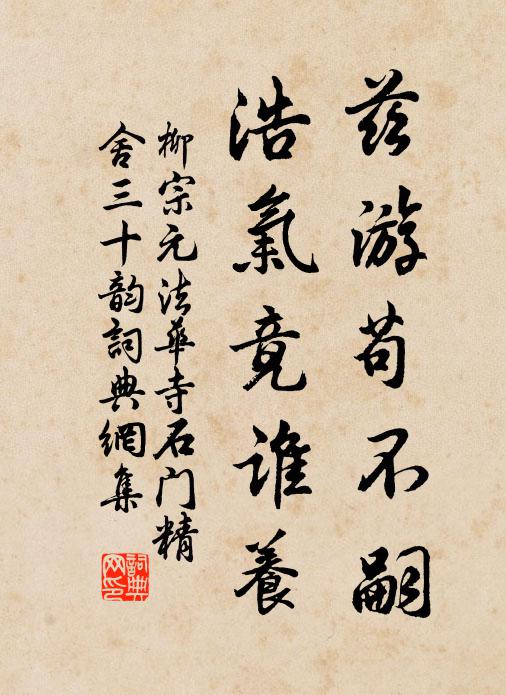 茲游苟不嗣
浩氣竟誰養
柳宗元法華寺石门精
舍三十韵詞典網集
詞典
网印